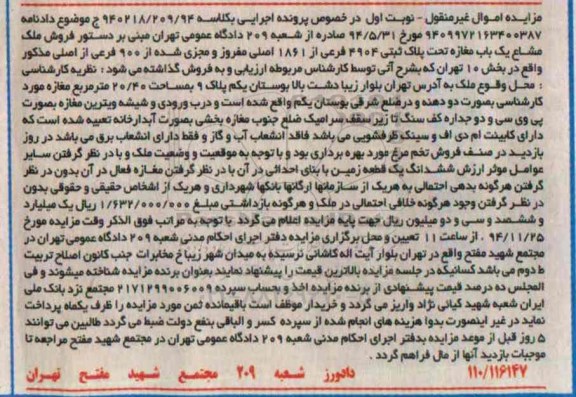 مزایده اموال غیرمنقول - نوبت اول در خصوص پرونده اجرایی بکلاسه ۹۴۰۲۱۸/۲۰۹/۹۴ ج موضوع دادنامه
۹۴۰۹۹۷۲۱۶۳۴۰۰۳۸۷ مورخ ۹۴/۵/۳۱ صادره از شعبه ۲۰۹ دادگاه عمومی تهران مبنی بر دستور فروش ملک
مشاع یک باب مغازه تحت پلاک ثبتی ۴۹۰۴ فرعی از ۱۸۶۱ اصلی مفروز و مجزی شده از ۹۰۰ فرعی از اصلی مذکور
واقع در بخش ۱۰ تهران که بشرح آتی توسط کارشناس مربوطه ارزیابی و به فروش گذاشته می شود : نظریه کارشناسی
: محل وقوع ملک به آدرس تهران بلوار زیبا دشت بالا بوستان یکم پلاک ۹ بمساحت ۲۰/۴۰ مترمربع مغازه مورد
کارشناسی بصورت دو دهنه و درضلع شرقی بوستان یکم واقع شده است و درب ورودی و شیشه ویترین مغازه بصورت
پی وی سی و دو جداره کف سنگ تا زیر سقف سرامیک ضلع جنوب مغازه بخشی بصورت آبدارخانه تعبیه شده است که
دارای کابینت ام دی اف و سینک ظرفشویی می باشد فاقد انشعاب آب و گاز و فقط دارای انشعاب برق می باشد در روز
بازدید در صنف فروش تخم مرغ مورد بهره برداری بود و با توجه به موقعیت و وضعیت ملک و با در نظر گرفتن سایر
عوامل موثر ارزش ششدانگ یک قطعه زمین با بنای احداثی در آن با در نظر گرفتن مغازه فعال در آن بدون در نظر
گرفتن هرگونه بدهی احتمالی به هریک از سازمانها ارگانها بانکها شهرداری و هریک از اشخاص حقیقی و حقوقی بدون
در نظر گرفتن وجود هرگونه خلافی احتمالی در ملک و هرگونه بازداشتی مبلغ ۱/۶۳۲/۰۰۰/۰۰۰ ریال یک میلیارد
و ششصد و سی و دو میلیون ریال جهت پایه مزایده اعلام می گردد با توجه به مراتب فوق الذکر وقت مزایده مورخ
۹۴/۱۱/۲۵ . از ساعت ۱۱ تعیین و محل برگزاری مزایده دفتر اجرای احکام مدنی شعبه ۲۰۹ دادگاه عمومی تهران در
مجتمع شهید مفتح واقع در تهران بلوار آیت اله کاشانی نرسیده به میدان شهر زیبا خ مخابرات جنب کانون اصلاح تربیت
ط دوم می باشد کسانیکه در جلسه مزایده بالاترین قیمت را پیشنهاد نمایند بعنوان برنده مزایده شناخته میشوند و فی
المجلس ده درصد قیمت پیشنهادی از برنده مزایده اخذ و بحساب سپرده ۲۱۷۱۲۹۹۰۰۶۰۰۹ مجتمع نزد بانک ملی
ایران شعبه شهید کیانی نژاد واریز می گردد و خریدار موظف است باقیمانده ثمن مورد مزایده را ظرف یکماه پرداخت
نماید در غیر اینصورت بدوا هزینه های انجام شده از سپرده کسر و الباقی بنفع دولت ضبط می گردد طالبین می توانند
۵ روز قبل از موعد مزایده بدفتر اجرای احکام مدنی شعبه ۲۰۹ دادگاه عمومی تهران در مجتمع شهید مفتح مراجعه تا
موجبات بازدید آنها از مال فراهم گردد .
۱۱۰/۱۱۶۱۴۷ دادورز شعبه ۲۰۹ مجتمع شهید مفتح تهران